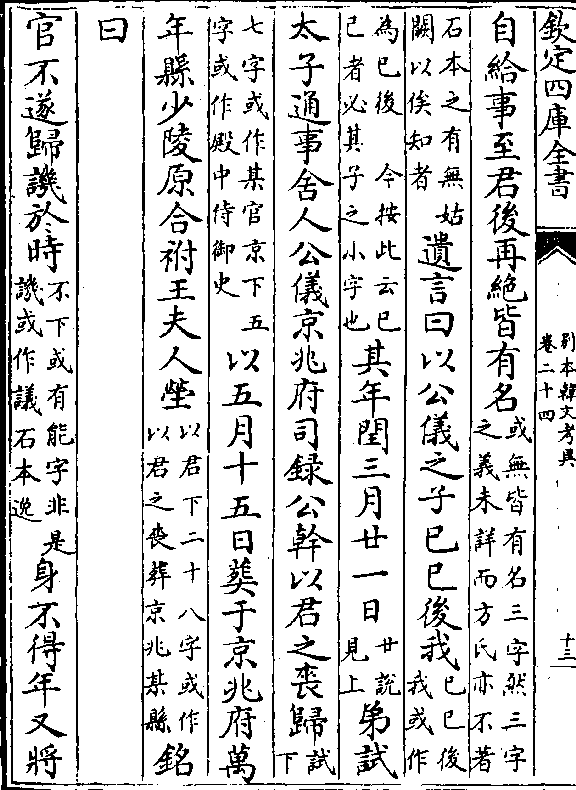 欽定四庫全書
別本韓文考異
卷二十四
十三
自給事至君後再絶皆有名或無皆有名三字然三字
之義未詳而方氏亦不著
石本之有無姑
闕以俟知者遺言曰以公儀之子已已後我已已後
我或作
為已後今按此云已
已者必其子之小字也其年閏三月廿一日廿說
見上弟試
太子通事舍人公儀京兆府司録公幹以君之喪歸試
下
七字或作某官京下五
字或作殿中侍御史以五月十五日葬于京兆府萬
年縣少陵原合祔王夫人塋以君下二十八字或作
以君之喪葬京兆某縣銘
曰
官不遂歸譏於時不下或有能字非是
譏或作議石本逸身不得年又將